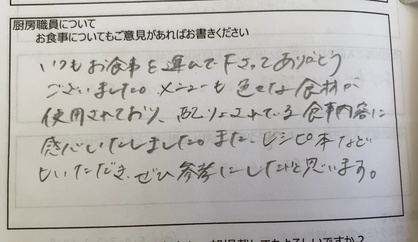 厨房職員について
お食事についてもご意見があればお書きください
いつもお食事を運んで下さってありがとう
ございました。メニューも色々な食材が
使用されており、配りょされている食事内容に
感心いたしました。また、レシピ本なども
いただき、ぜひ参考にしたいと思います。